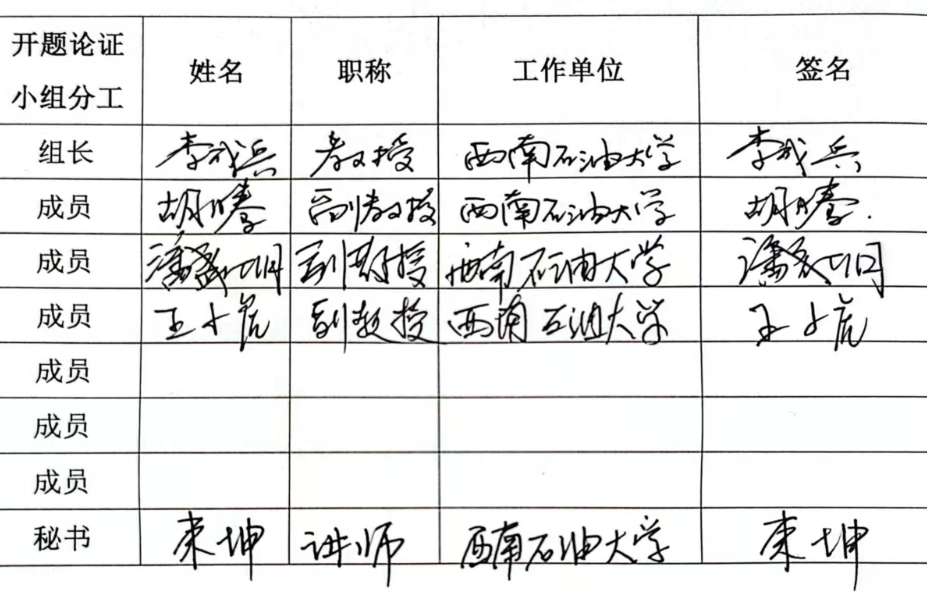 开题论证
小组分工 姓名 职称 工作单位 签名
组长 李成兵 教授 西南石油大学 李成兵
成员 胡 副教授 西南石油大学 胡
成员 潘 副教授 西南石油大学 潘
成员 王小虎 副教授 西南石油大学 王小虎
成员
成员
成员
秘书 束坤 讲师 西南石油大学 束坤